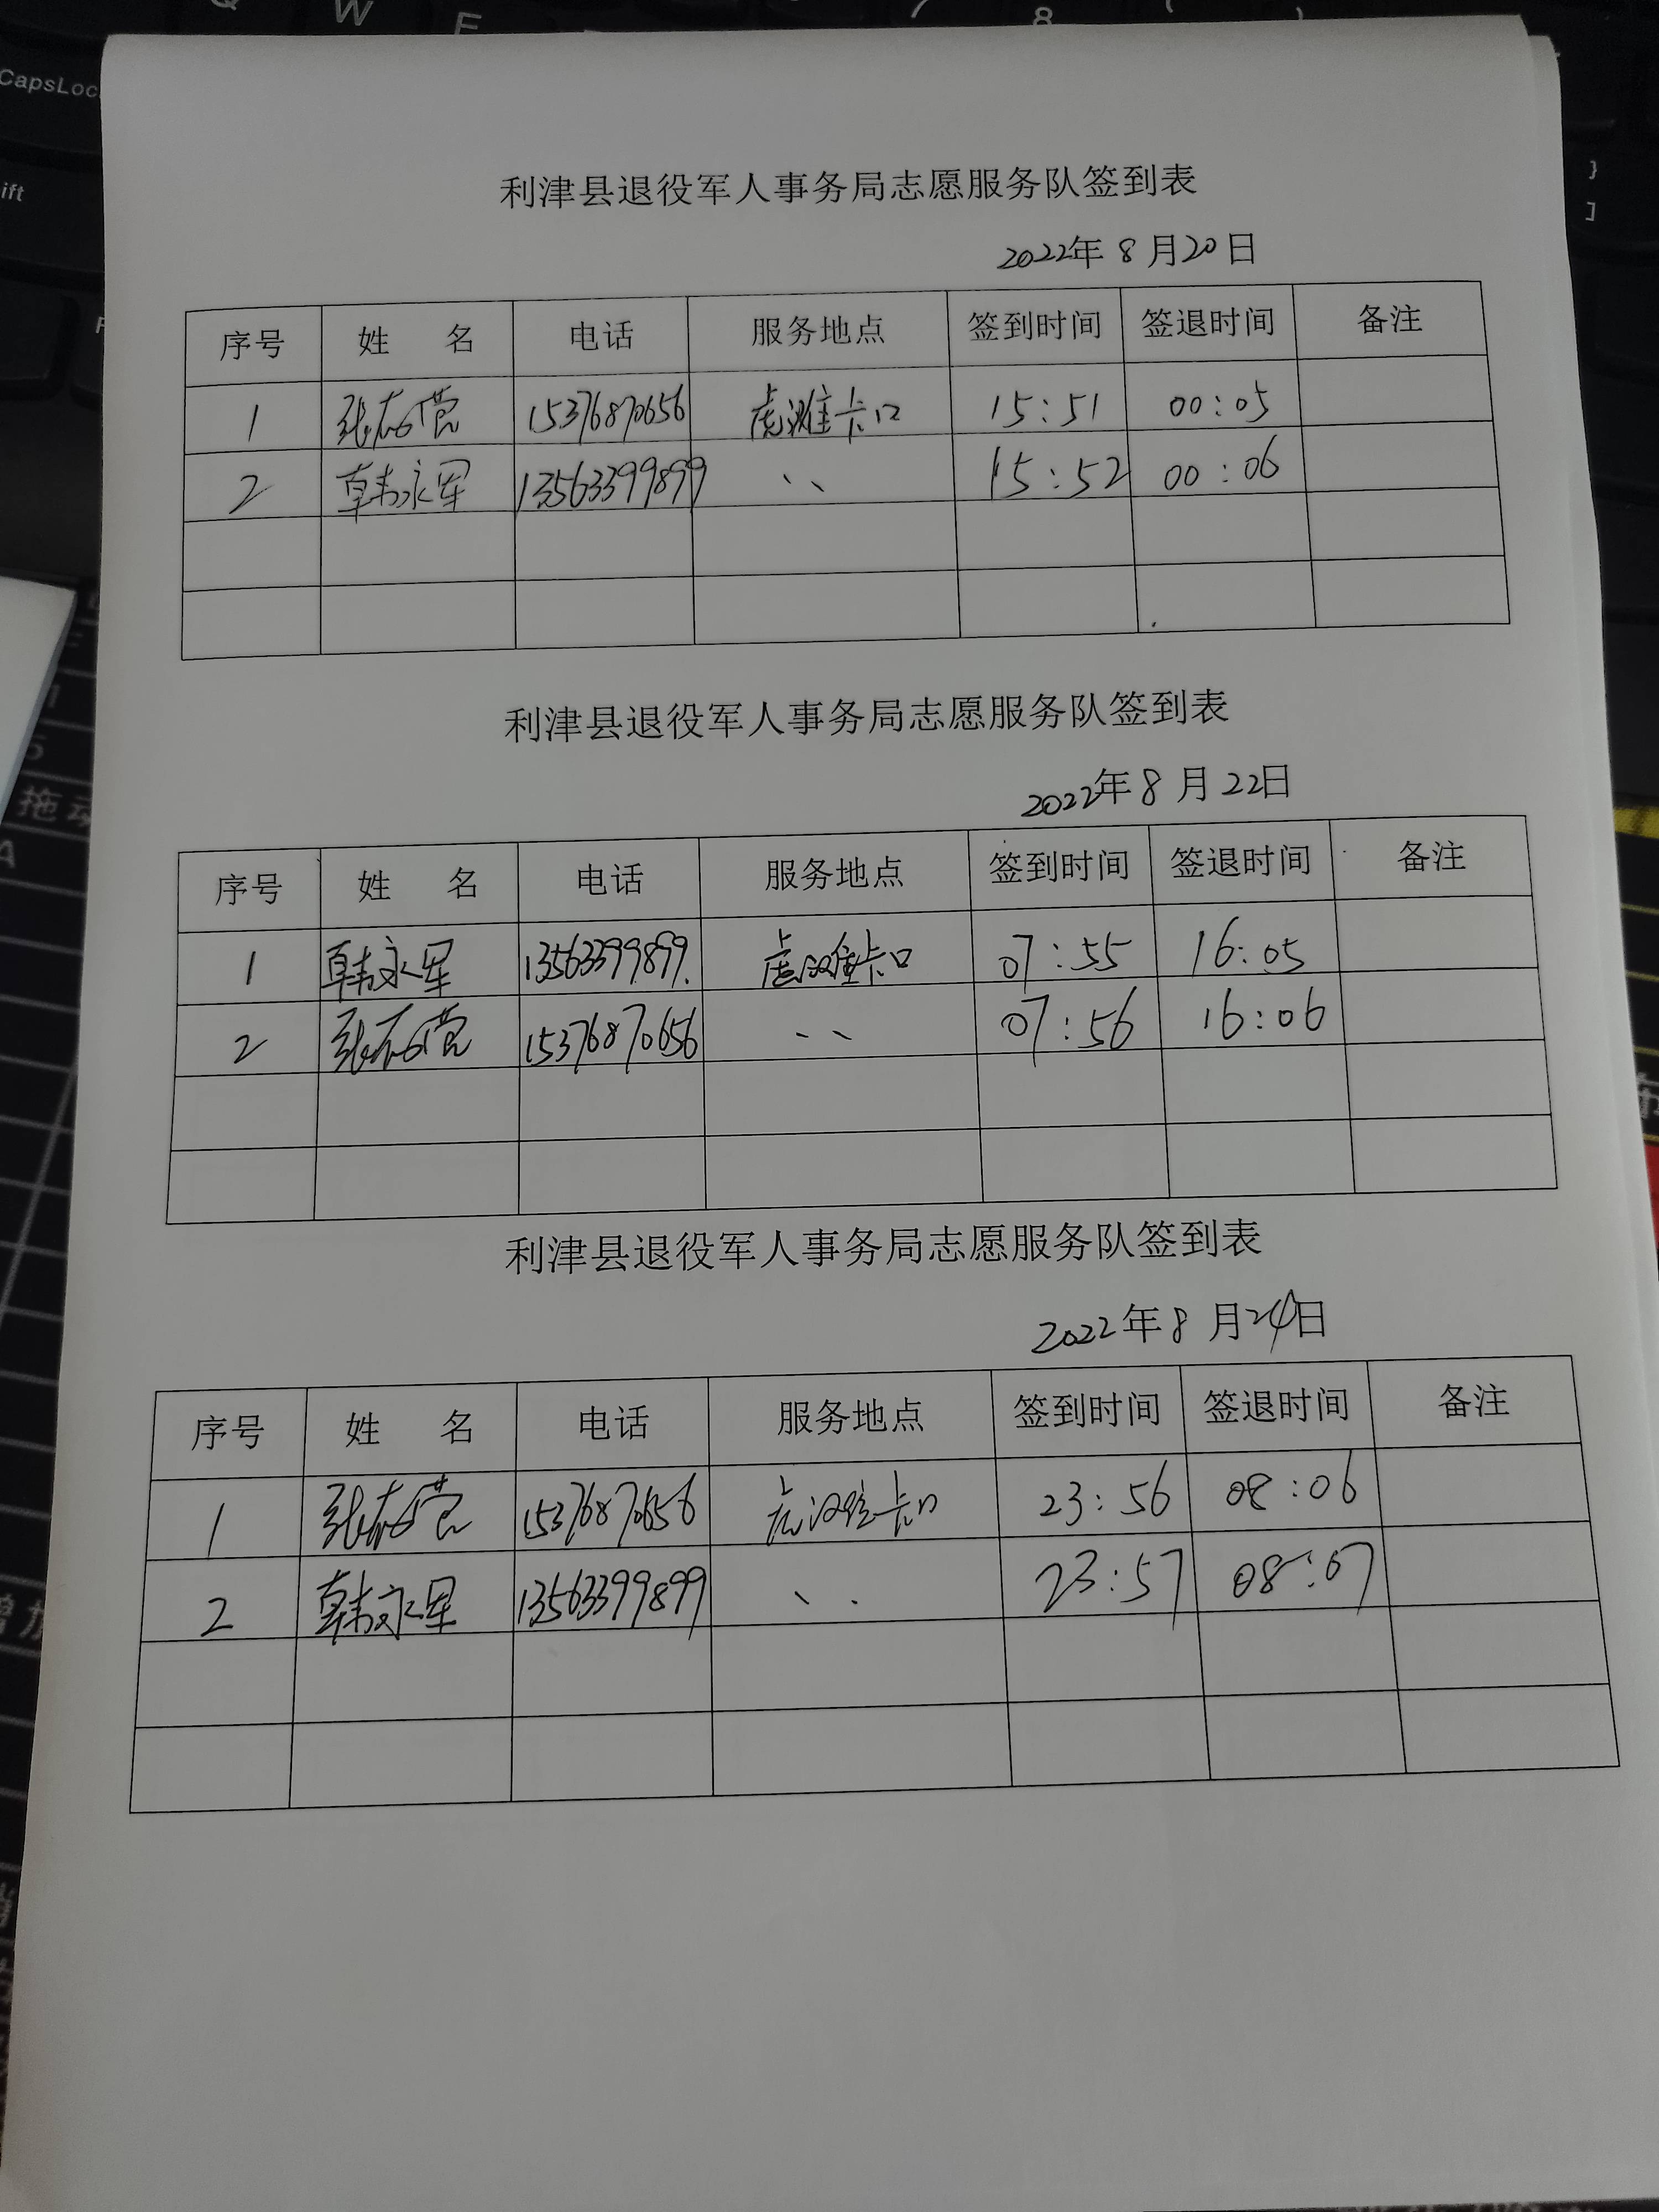 Q W E 7 8
CapsLoc
ift
}
]
利津县退役军人事务局志愿服务队签到表
2022年 8 月20日
序号 姓 名 电话 服务地点 签到时间 签退时间 备注
1 15376870656 虎滩卡口 15:51 00:05
2 韩永军 13563399899 、、 15:52 00:06
利津县退役军人事务局志愿服务队签到表
2022年 8 月 22日
序号 姓 名 电话 服务地点 签到时间 签退时间 备注
1 韩永军 13563399899. 虎滩卡口 07:55 16:05
2 15376870656 、、 07:56 16:06
利津县退役军人事务局志愿服务队签到表
2022年 8 月24日
序号 姓 名 电话 服务地点 签到时间 签退时间 备注
1 15376870656 虎滩卡口 23:56 08:06
2 韩永军 13563399899 、、 23:57 08:07